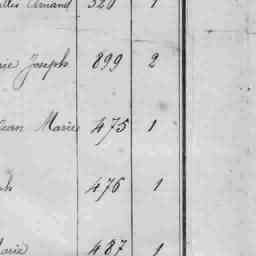 Amand 320 1
rie Joseph 899 2
Jean Marie 475 1
ph 476 1
Marie 487 1